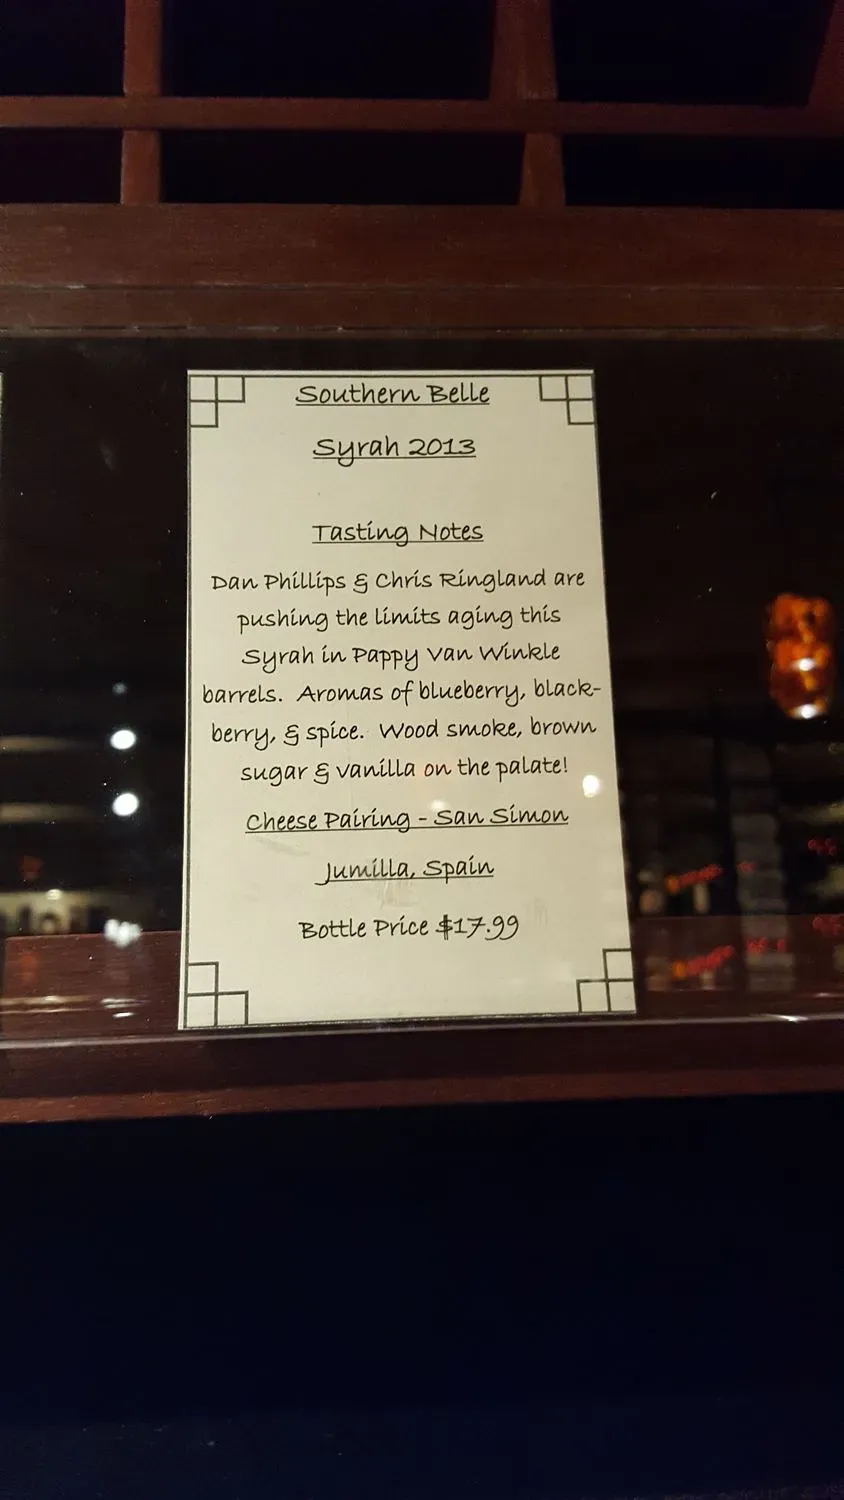 Southern Belle
Syrah 2013
Tasting Notes
Dan Phillips & Chris Ringland are
pushing the limits aging this
Syrah in Pappy Van Winkle
barrels. Aromas of blueberry, black-
berry, & spice. Wood smoke, brown
sugar & vanilla on the palate!
Cheese Pairing - San Simon
Jumilla, Spain
Bottle Price $17.99